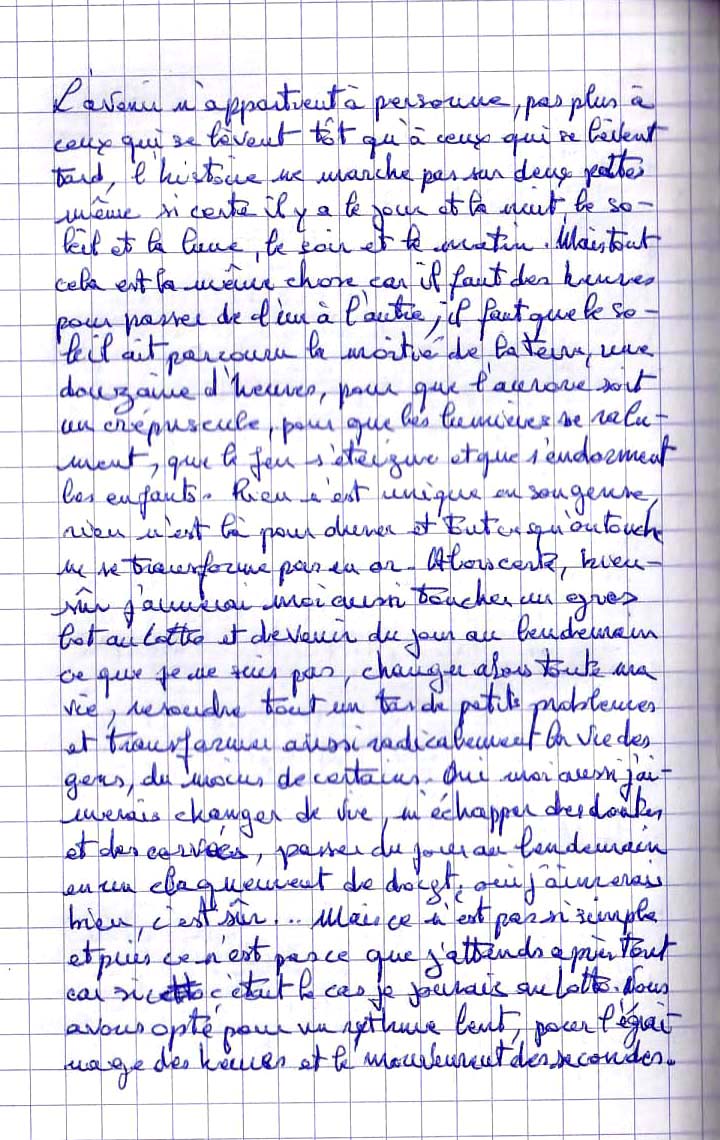 L'avenir n'appartient à personne, pas plus à
ceux qui se lèvent tôt qu'à ceux qui se lèvent
tard, l'histoire ne marche pas sur deux pattes
même si certe il y a le jour et la nuit, le so-
leil et la lune, le soir et le matin. Mais tout
cela est la même chose car il faut des heures
pour passer de l'un à l'autre, il faut que le so-
leil ait parcouru la moitié de la terre, une
douzaine d'heures, pour que l'aurore soit
un crépuscule, pour que les lumières se ralu-
ment, que le feu s'éteigne et que s'endorment
les enfants. Rien n'est unique en son genre,
rien n'est là pour durer et tout ce qu'on touche
ne se transforme pas en or. Alors certe, bien-
sûr j'aimerai moi aussi toucher un gros
lot au lotto et devenir du jour au lendemain
ce que je ne suis pas, changer alors toute ma
vie, resoudre tout un tas de petits problèmes
et transformer aussi radicalement la vie des
gens, du moins de certains. Oui moi aussi j'ai-
merais changer de vie, m'échapper des doutes
et des corvées, passer du jour au lendemain
en un claquement de doigt, oui j'aimerais
bien, c'est sûr... Mais ce n'est pas si simple
et puis ce n'est pas ce que j'attends après tout
car si c'était le cas je jouerais au lotto. Nous
avons opté pour un rythme lent, pour l'égrai-
nage des heures et le mouvement des secondes.